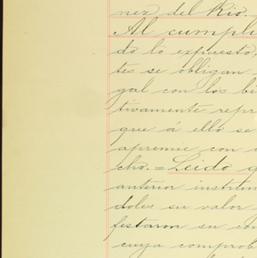 nez del Rio.
Al cumpli
do lo expuesto,
tes se obligan
gal con los bi
tivamente repr
que á ello se
apremie con
cho.=Leido q
anterior instrum
doles su valor
festaron su con
cuya comprob